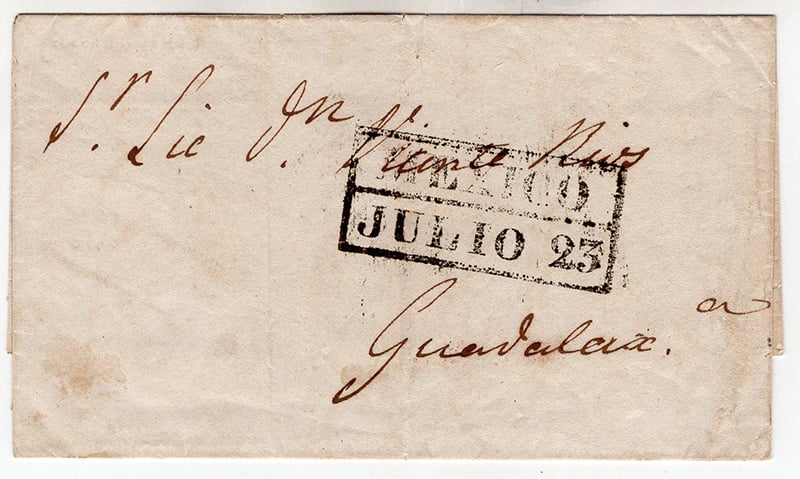 Sr. Lic Dn. Vicente Rios
MEXICO
JULIO 23
Guadalax.a